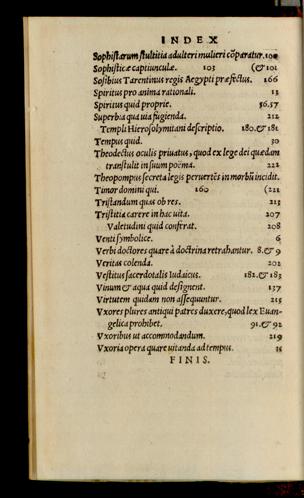 INDEX
Sophistarum stultitia adulteri mulieri cõparatur. 100
Sophisticæ captiunculæ. 103 (& 101
Sosibius Tarentinus regis Aegypti præfectus. 166
Spiritus pro anima rationali. 13
Spiritus quid proprie. 56.57
Superbia qua uia fugienda. 212
Templi Hierosolymitani descriptio. 180.& 181
Tempus quid. 30
Theodectus oculis priuatus, quod ex lege dei quædam
transtulit in suum poëma. 222
Theopompus secreta legis peruertẽs in morbũ incidit.
Timor domini qui. 160 (222
Tristandum quas ob res. 213
Tristitia carere in hac uita. 207
Valetudini quid conferat. 208
Venti symbolice. 6
Verbi doctores quare à doctrina retrahantur. 8.& 9
Veritas colenda. 202
Vestitus sacerdotalis Iudaicus. 182.& 183
Vinum & aqua quid designent. 137
Virtutem quidam non assequuntur. 215
Vxores plures antiqui patres duxere, quod lex Euan-
gelica prohibet. 91.& 92
Vxoribus ut accommodandum. 219
Vxoria opera quare uitanda ad tempus. 35
FINIS.